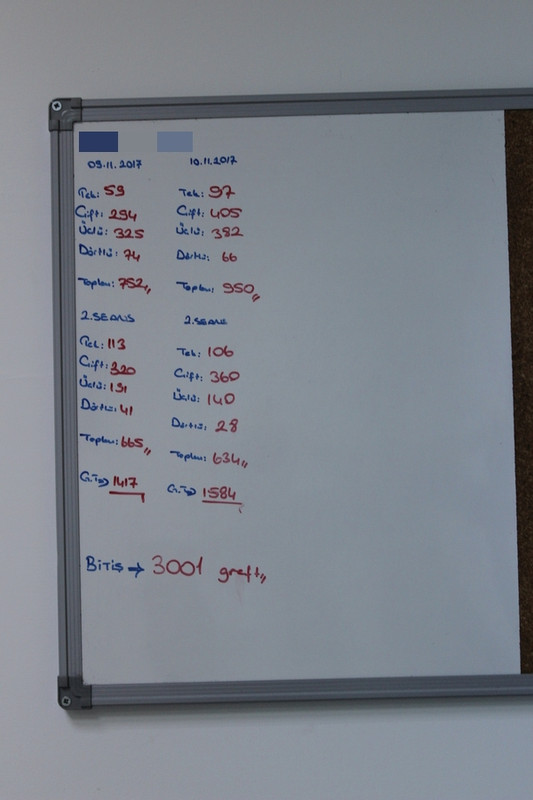 09.11.2017
Tek: 59
Çift: 294
Üçlü: 325
Dörtlü: 74
Toplam: 752
2.SEANS
Tek: 113
Çift: 320
Üçlü: 191
Dörtlü: 41
Toplam: 665
G.T→ 1417
10.11.2017
Tek: 97
Çift: 405
Üçlü: 382
Dörtlü: 66
Toplam: 950
2.SEANS
Tek: 106
Çift: 360
Üçlü: 140
Dörtlü: 28
Toplam: 634
G.T→ 1584
BİTİŞ → 3001 greft